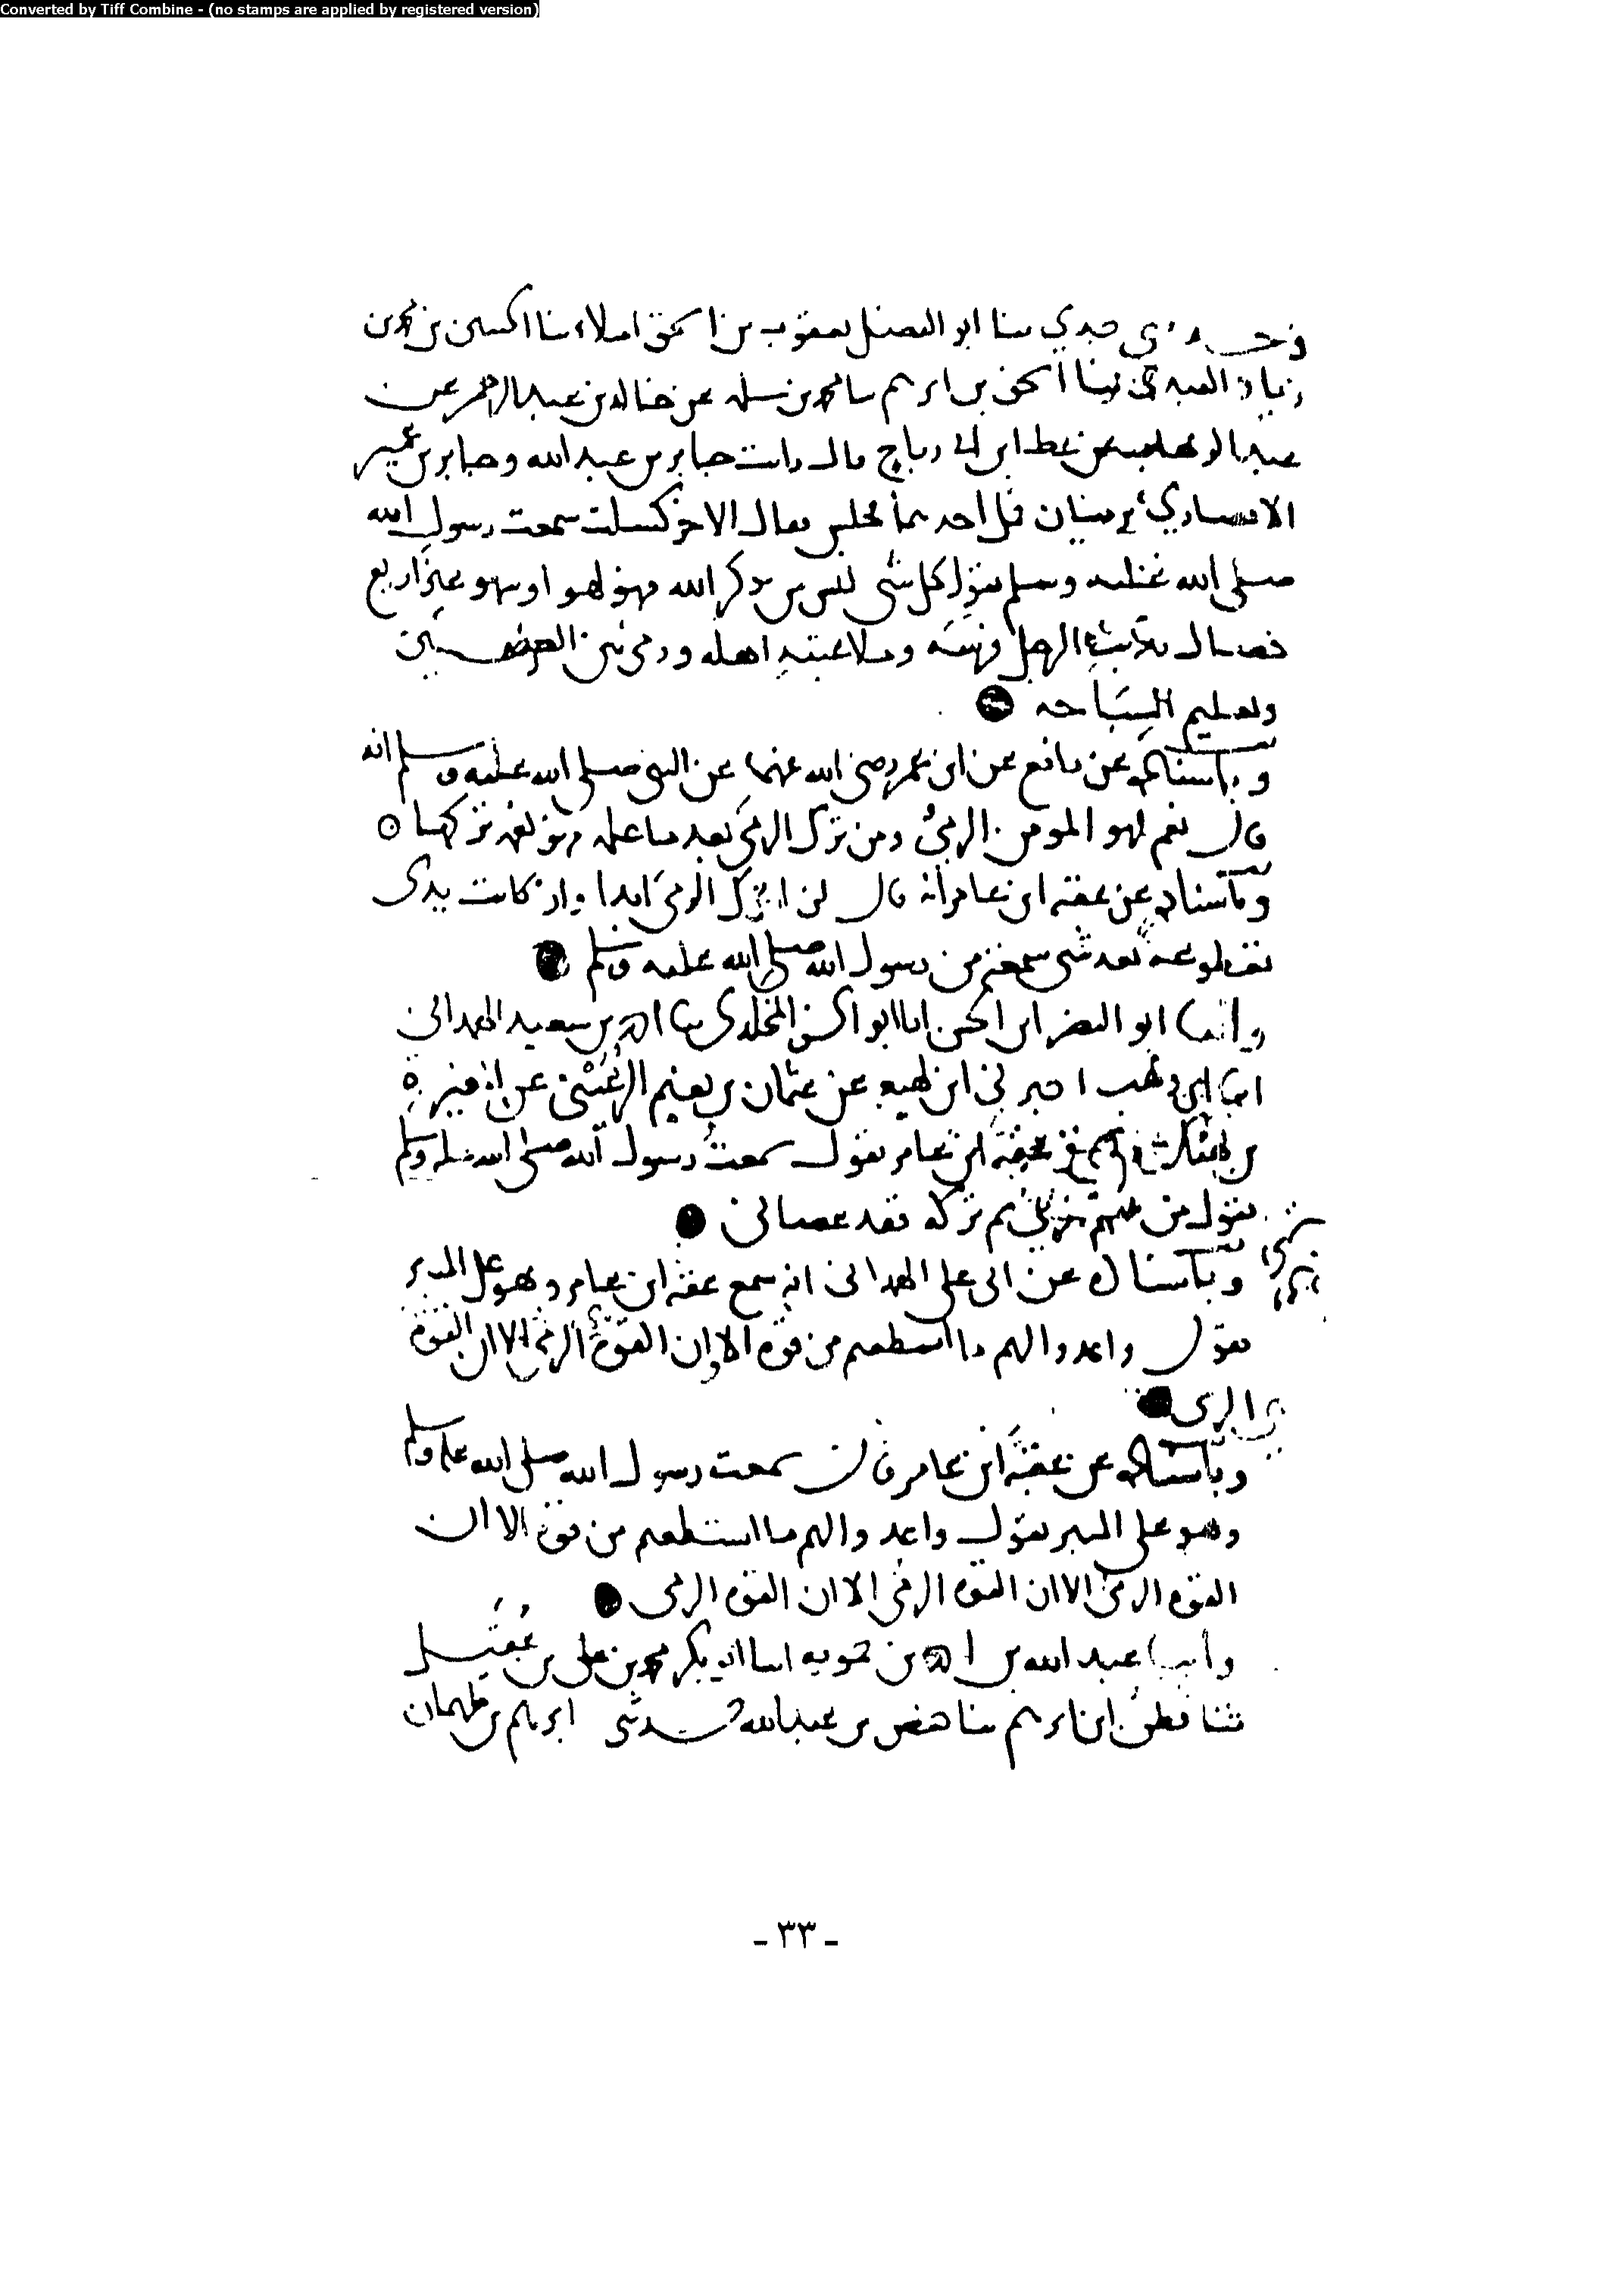 Converted by Tiff Combine - (no stamps are applied by registered version)
جدي ثنا ابو الفضل يعقوب بن اسحق املاء ثنا الحسين بن محمد بن
زياد العبدي ثنا اسحق بن ابرهيم ثنا محمد بن سلمه عن خالد بن عبد الرحيم عن
عبد الوهاب عن عطا ابن ابي رباح قال رايت جابر بن عبد الله وجابر بن عمير
الانصاري يرميان فمل احدهما فجلس فقال الاخر كسلت سمعت رسول الله
صلى الله عليه وسلم يقول كل شي ليس من ذكر الله فهو لهو او سهو غير اربع
خصال تاديب الرجل فرسه وملاعبته اهله ورمي بين الغرضين
وتعليم السباحه
وباسناده عن نافع عن ابن عمر رضي الله عنهما عن النبي صلى الله عليه وسلم انه
قال نعم لهو المومن الرمي ومن ترك الرمي بعد ما علمه فهو نعمه تركها
وباسناده عن عقبه ابن عامر انه قال لن اترك الرمي ابدا وان كانت يدي
مقطوعة بعد شي سمعته من رسول الله صلى الله عليه وسلم
وانبا ابو النصر ابن الحسن انا ابو الحسن المخلدي ثنا احمد بن سعيد الهمداني
انبا ابن وهب اخبرني ابن لهيعه عن عثمان بن نعيم الرعيني عن المغيرة
بن نهيك انه سمع عقبة ابن عامر يقول سمعت رسول الله صلى الله عليه وسلم
يقول من علم الرمي ثم تركه فقد عصاني
وباسناده عن ابي علي الهمداني انه سمع عقبة ابن عامر وهو على المنبر
يقول واعدوا لهم ما استطعتم من قوة الا وان القوة الرمي الا ان القوة
الرمي
وباسناده عن عقبة ابن عامر قال سمعت رسول الله صلى الله عليه وسلم
وهو على المنبر يقول واعدوا لهم ما استطعتم من قوة الا ان
القوه الرمي الا ان القوه الرمي الا ان القوه الرمي
وانبا عبد الله بن احمد بن حمويه انبا ابو بكر محمد بن علي بن عقيل
ثنا قطن ابن ابرهيم ثنا حفص بن عبد الله حدثني ابرهيم بن طهمان
- ٣٣ -